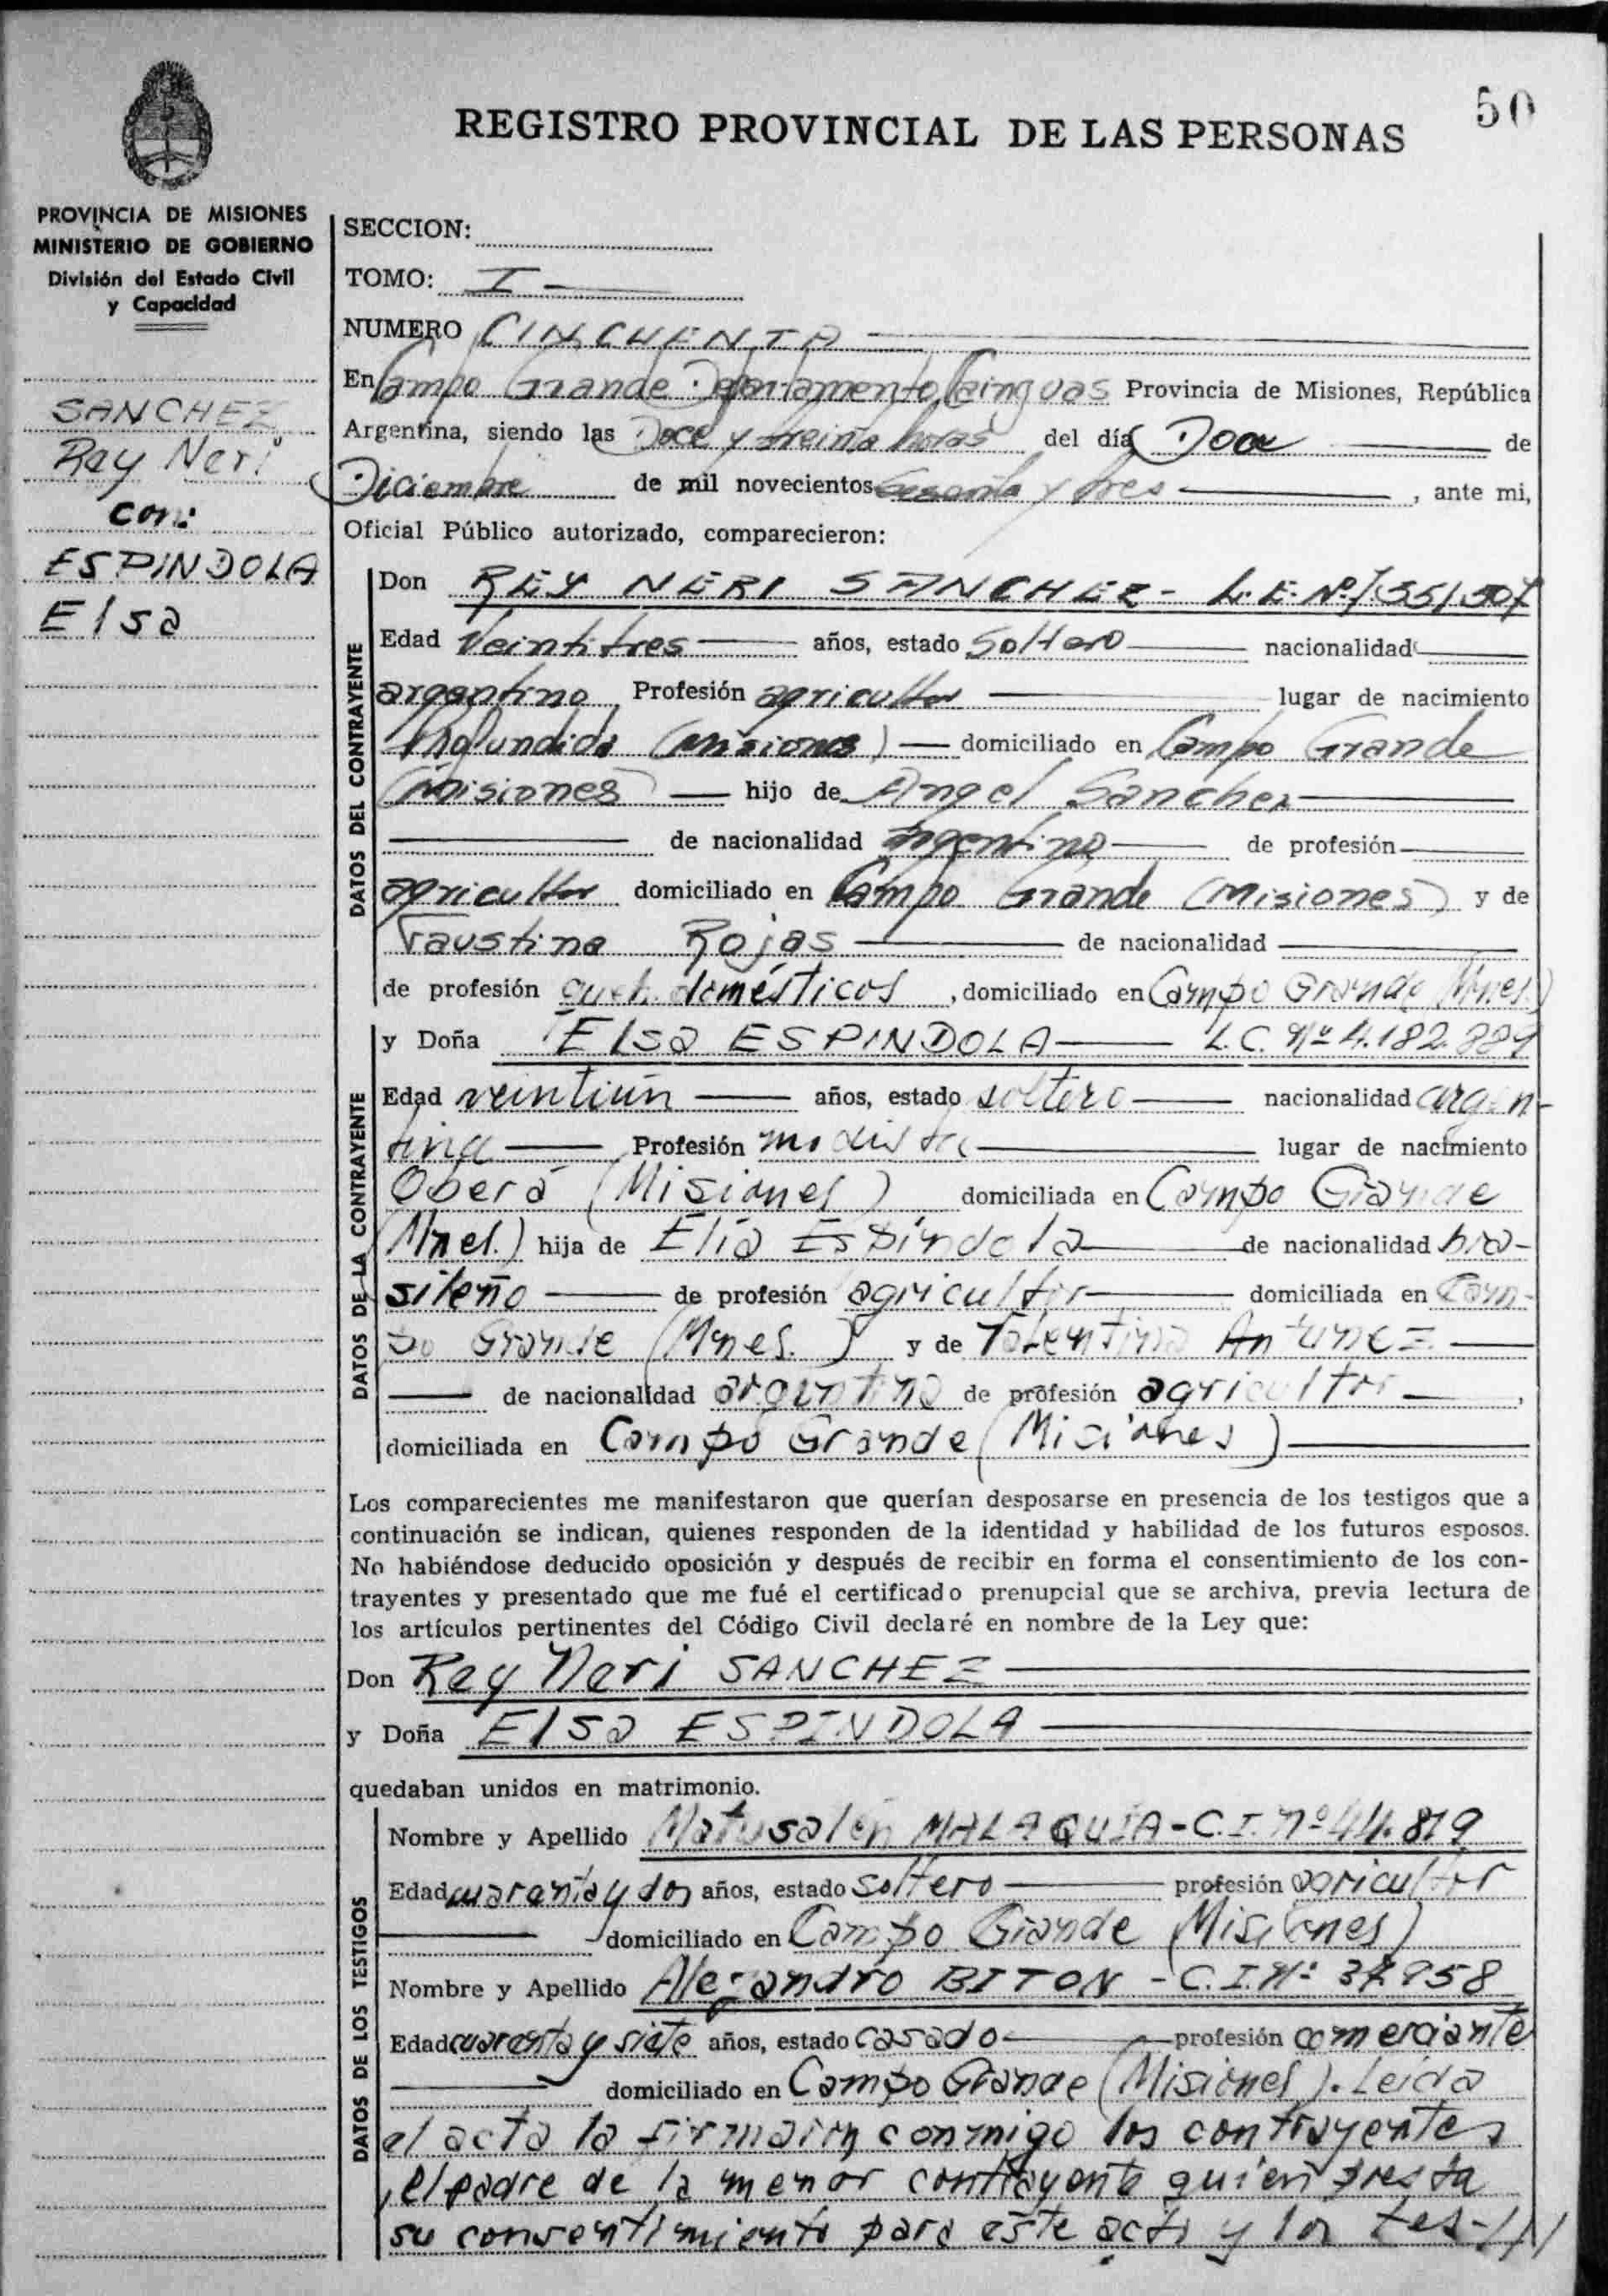 50
REGISTRO PROVINCIAL DE LAS PERSONAS
PROVINCIA DE MISIONES
MINISTERIO DE GOBIERNO
División del Estado Civil
y Capacidad
SANCHEZ
Rey Neri
con:
ESPINDOLA
Elsa
SECCION:
TOMO: I -
NUMERO CINCUENTA
En Campo Grande Departamento Cainguas Provincia de Misiones, República
Argentina, siendo las Doce y treinta horas del día Doce de
Diciembre de mil novecientos sesenta y tres, ante mi,
Oficial Público autorizado, comparecieron:
DATOS DEL CONTRAYENTE
Don REY NERI SANCHEZ - L.E. Nº
Edad Veintitres años, estado Soltero nacionalidad
argentino Profesión agricultor lugar de nacimiento
(Misiones) domiciliado en Campo Grande
(Misiones) hijo de Angel Sanchez
de nacionalidad argentina de profesión
agricultor domiciliado en Campo Grande (Misiones) y de
Faustina Rojas de nacionalidad
de profesión queh. domésticos, domiciliado en Campo Grande Mnes.)
DATOS DE LA CONTRAYENTE
y Doña Elsa ESPINDOLA L.C. Nº 4.182.889
Edad veintiún años, estado soltero nacionalidad argen-
tina Profesión modista lugar de nacimiento
Oberá (Misiones) domiciliada en Campo Grande
(Mnes.) hija de Elia Espíndola de nacionalidad bra-
sileño de profesión agricultor domiciliada en Cam-
po Grande (Mnes.) y de Tolentina Antunez
de nacionalidad argentina de profesión agricultor,
domiciliada en Campo Grande (Misiones)
Los comparecientes me manifestaron que querían desposarse en presencia de los testigos que a
continuación se indican, quienes responden de la identidad y habilidad de los futuros esposos.
No habiéndose deducido oposición y después de recibir en forma el consentimiento de los con-
trayentes y presentado que me fué el certificado prenupcial que se archiva, previa lectura de
los artículos pertinentes del Código Civil declaré en nombre de la Ley que:
Don Rey Neri SANCHEZ
y Doña Elsa ESPINDOLA
quedaban unidos en matrimonio.
DATOS DE LOS TESTIGOS
Nombre y Apellido Matusalén MALAQUIA - C.I. Nº 44.819
Edad cuarenta y dos años, estado soltero profesión agricultor
domiciliado en Campo Grande (Misiones)
Nombre y Apellido Alejandro BITON - C.I. Nº 37.958
Edad cuarenta y siete años, estado casado profesión comerciante
domiciliado en Campo Grande (Misiones). Leída
el acta la firmaron conmigo los contrayentes
, el padre de la menor contrayente quien presta
su consentimiento para este acto y los tes-///